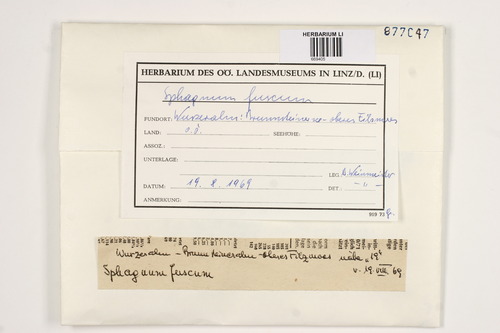 877047
HERBARIUM LI
HERBARIUM DES OÖ. LANDESMUSEUMS IN LINZ/D. (LI)
Sphagnum fuscum
FUNDORT: Wurzeralm: oberes Filzmoos
LAND: O.Ö. SEEHÖHE:
ASSOZ.:
UNTERLAGE:
LEG.
DATUM: 19. 8. 1969 DET.: - " -
ANMERKUNG:
Wurzeralm - oberes Filzmoos
Sphagnum fuscum v. 19. VIII. 69